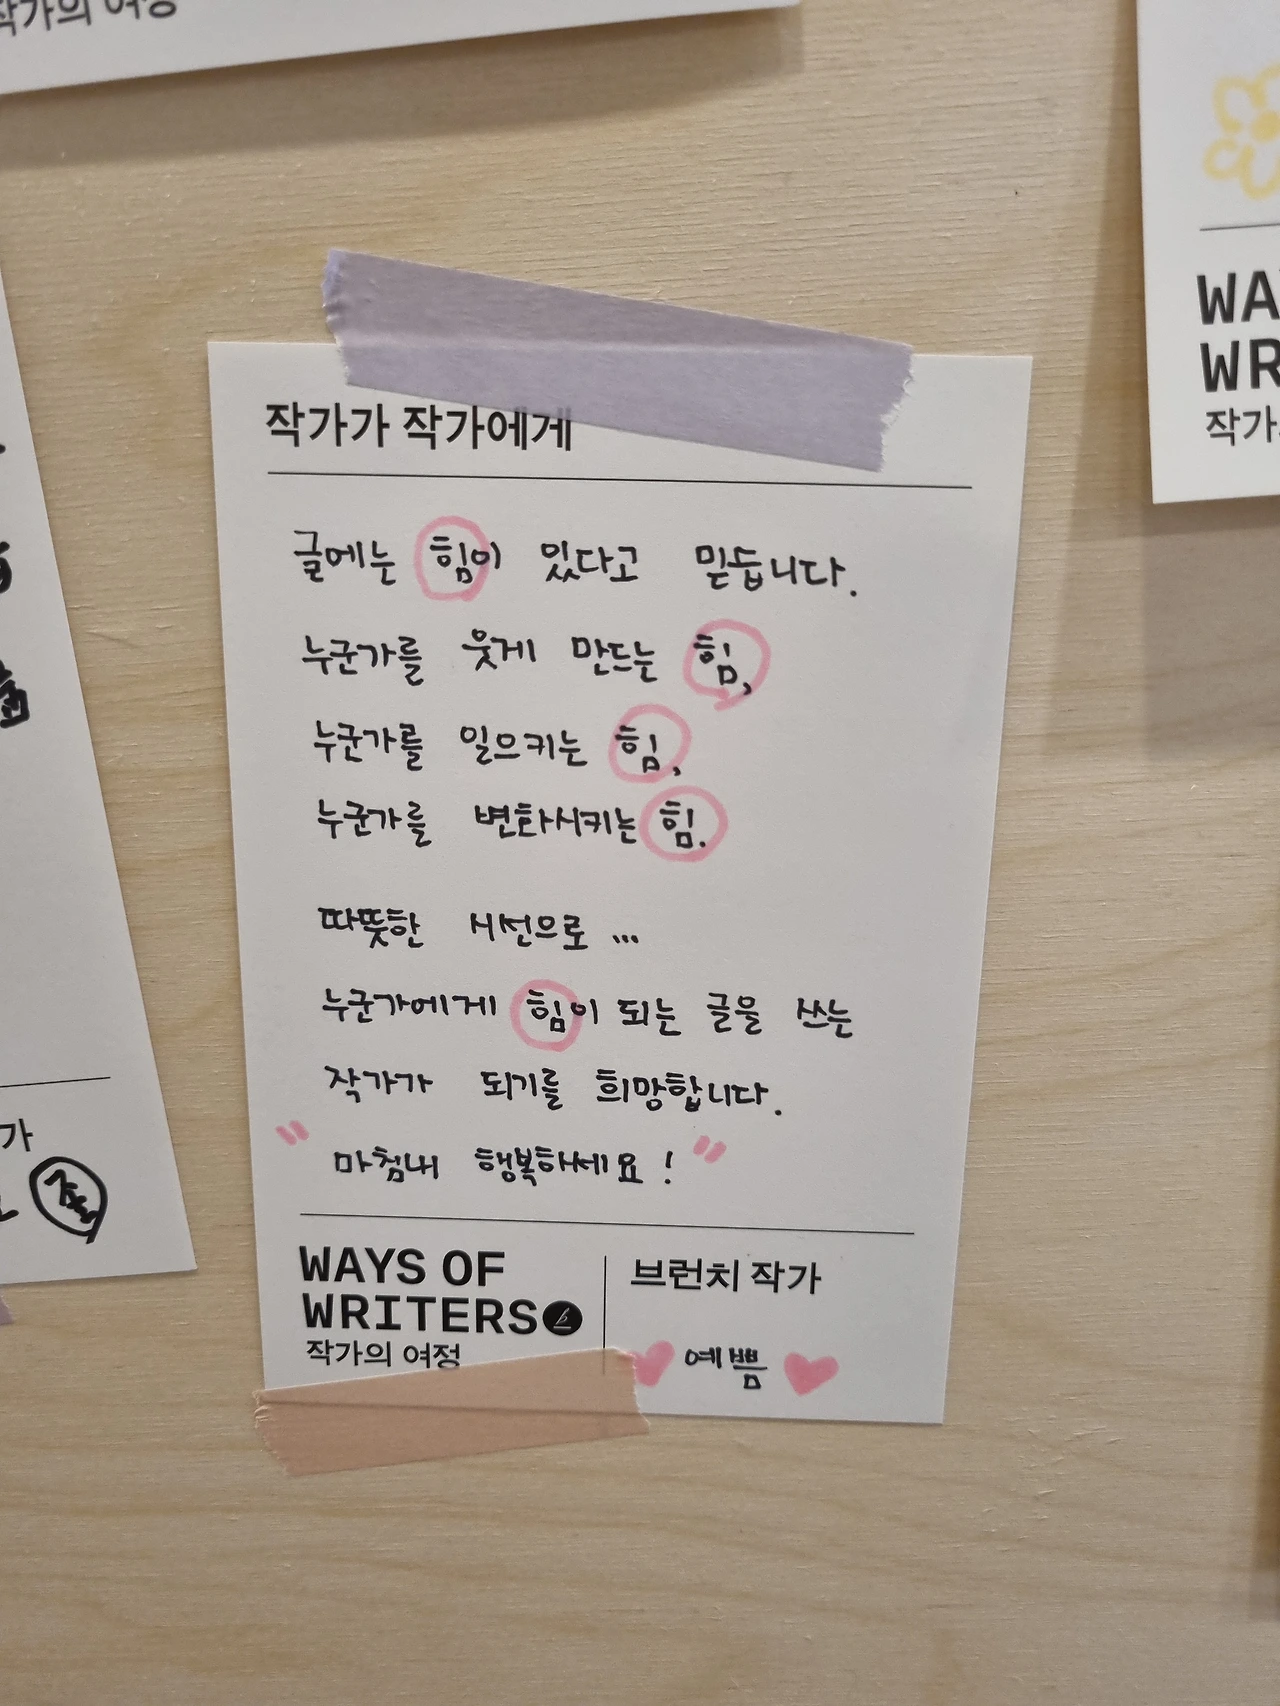 작가의 여정
작가가 작가에게
글에는 힘이 있다고 믿듭니다.
누군가를 웃게 만드는 힘,
누군가를 일으키는 힘,
누군가를 변화시키는 힘.
따뜻한 시선으로...
누군가에게 힘이 되는 글을 쓰는
작가가 되기를 희망합니다.
"마침내 행복하세요!"
WAYS OF
WRITERS
작가의 여정
브런치 작가
예쁨